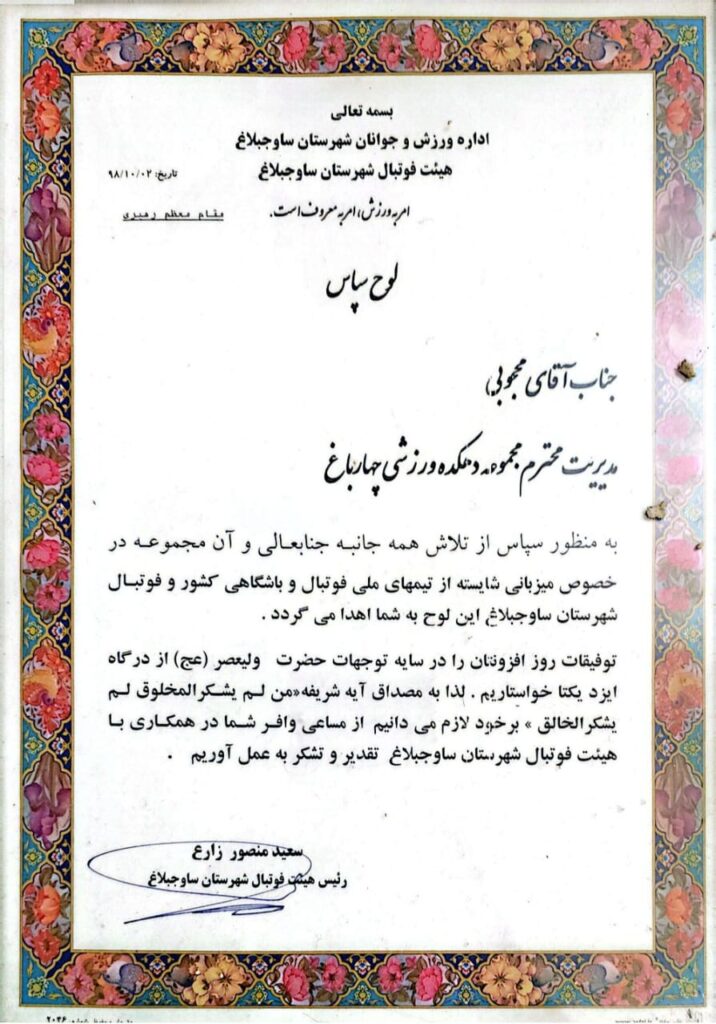 بسمه تعالی
اداره ورزش و جوانان شهرستان ساوجبلاغ
هیئت فوتبال شهرستان ساوجبلاغ
تاریخ: ۹۸/۱۰/۰۲
امر به ورزش، امر به معروف است.
مقام معظم رهبری
لوح سپاس
جناب آقای محبوبی
مدیریت محترم مجموعه دهکده ورزشی چهارباغ
به منظور سپاس از تلاش همه جانبه جنابعالی و آن مجموعه در
خصوص میزبانی شایسته از تیمهای ملی فوتبال و باشگاهی کشور و فوتبال
شهرستان ساوجبلاغ این لوح به شما اهدا می گردد .
توفیقات روز افزونتان را در سایه توجهات حضرت ولیعصر (عج) از درگاه
ایزد یکتا خواستاریم . لذا به مصداق آیه شریفه «من لم یشکرالمخلوق لم
یشکرالخالق » برخود لازم می دانیم از مساعی وافر شما در همکاری با
هیئت فوتبال شهرستان ساوجبلاغ تقدیر و تشکر به عمل آوریم .
سعید منصور زارع
رئیس هیئت فوتبال شهرستان ساوجبلاغ
۲۰۴۶